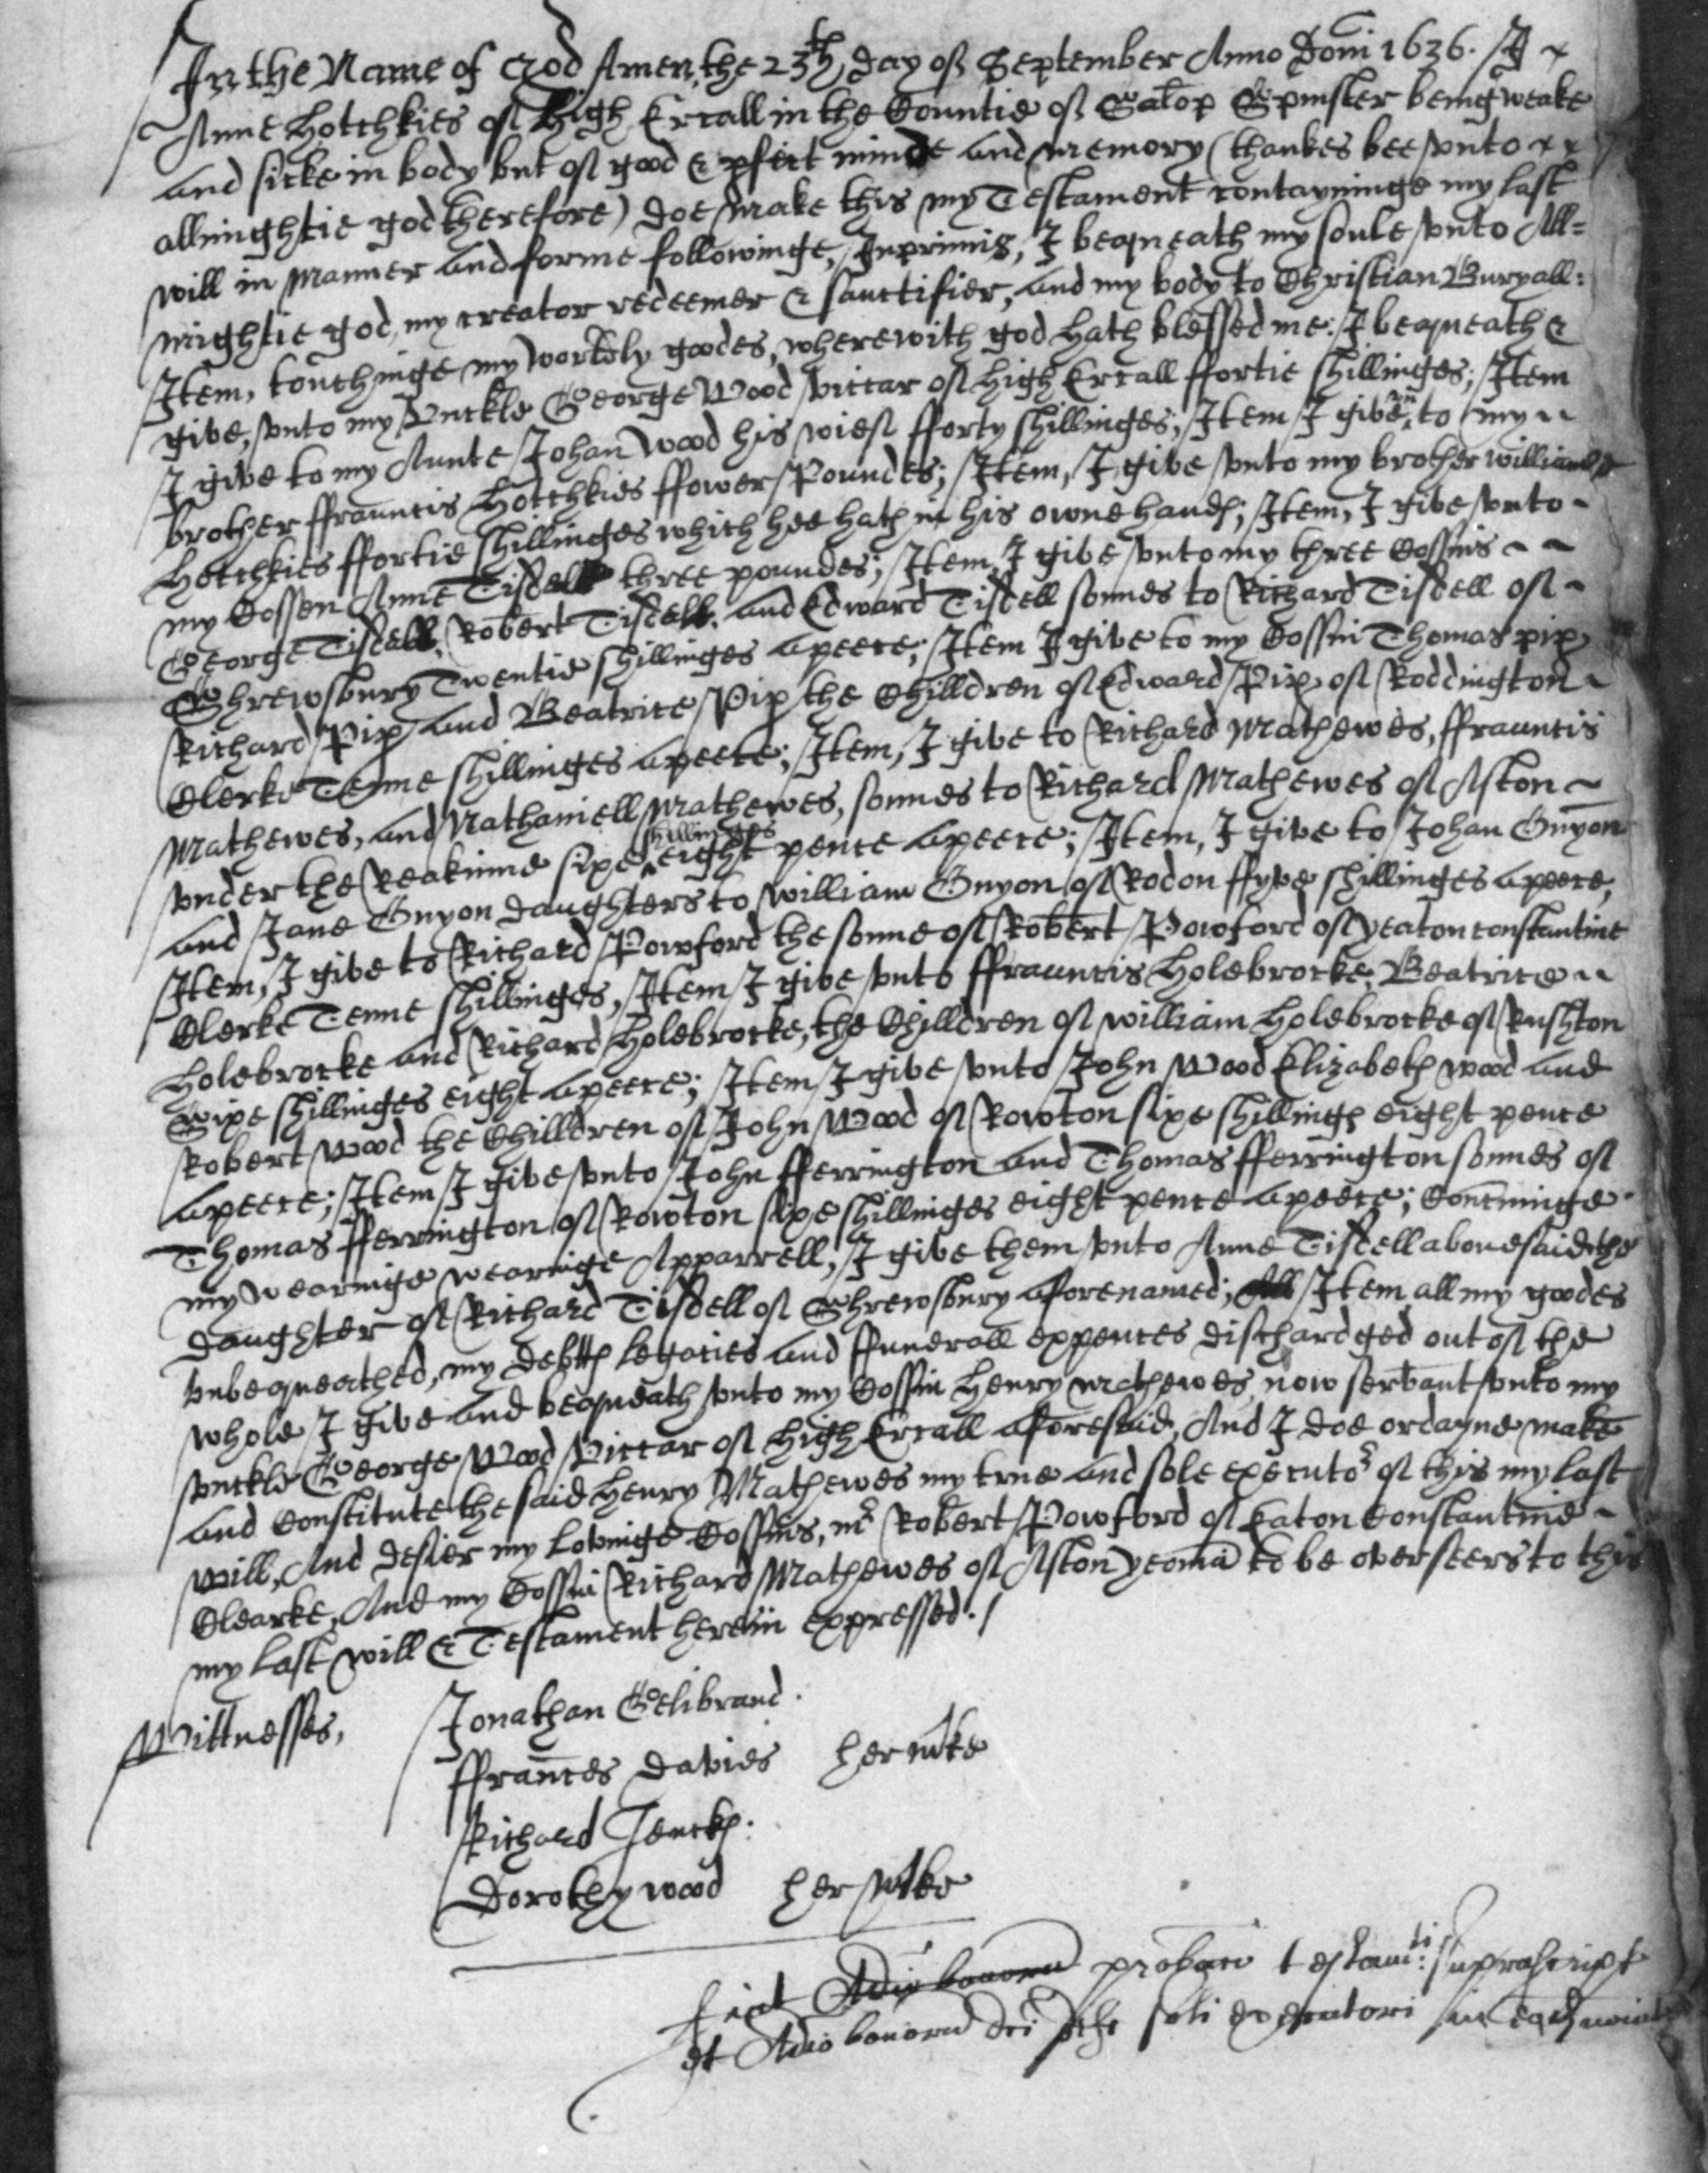 In the Name of God Amen, the 23th day of September Anno Domi 1636. I
Anne Hotchkies of High Ercall in the Countie of Salop Spinster being weake
and sicke in body but of good & pfect minde and memory (thankes bee unto
allmightie god therefore) doe make this my Testament contayninge my last
will in manner and forme followinge, Inprimis, I bequeath my soule unto All=
mightie god, my creator redeemer & sanctifier, and my body to Christian Buryall:
Item, touchinge my worldly goodes, wherewith god hath blessed me: I bequeath &
give, unto my Unckle George Wood viccar of High Ercall ffortie shillinges; Item
I give to my Aunte Johan Wood his wief fforty shillinges; Item I give unto my
brother ffrauncis Hotchkies ffower Poundes; Item, I give unto my brother william
Hotchkies ffortie shillinges which hee hath in his owne hands; Item, I give unto
my Cossen Anne Tisdell three poundes; Item, I give unto my three Cossins
George Tisdell, Robert Tisdell, and Edward Tisdell sonnes to Richard Tisdell of
Shrewsbury Twentie shillinges apeece; Item I give to my Cossin Thomas pip
Richard Pip and Beatrice Pip the Chilldren of Edward Pip of Roddington
Clerke Tenne shillinges apeece; Item, I give to Richard Mathewes, ffrauncis
Mathewes, and Nathaniell Mathewes, sonnes to Richard Mathewes of Aston
under the Reakinne sixe shillinges eight pence apeece; Item, I give to Johan Onyon
and Jane Onyon daughters to william Onyon of Rodon ffyve shillinges apeece,
Item, I give to Richard Powford the sonne of Robert Powford of yeaton constantine
Clerke Tenne shillinges, Item I give unto ffrauncis Holebrocke, Beatrice
Holebrocke and Richard Holebrocke, the Chilldren of william Holebrocke of Rushton
Sixe shillinges eight apeece; Item I give unto John Wood Elizabeth wood and
Robert Wood the Chilldren of John Wood of Rowton sixe shillings eight pence
apeece; Item I give unto John fferrington and Thomas fferrington sonnes of
Thomas fferrington of Rowton sixe shillinges eight pence apeece; Concninge
my wearinge wearinge Apparrell, I give them unto Anne Tisdell abovesaid the
daughter of Richard Tisdell of Shrewsbury aforenamed; All Item all my goodes
unbequeathed, my debtts legacies and ffunerall expences dischardged out of the
whole I give and bequeath unto my Cossin Henry mathewes now servant unto my
unckle George Wood Viccar of High Ercall aforesaid, And I doe ordayne make
and Constitute the said Henry Mathewes my true and sole executor of this my last
will, And desier my Lovinge Cossins, mr Robert Powford of Eaton Constantine
Clearke, And my Cossin Richard Mathewes of Aston yeoma to be overseers to this
my last will & Testament herein expressed. /
Wittnesses,
Jonathan Gelibrand.
ffrances Davies her mke
Richard Jencks.
Dorothy wood her mke
fiat Adio bonoru probaco testamti suprascript
et Adio bonoru dci soli executori